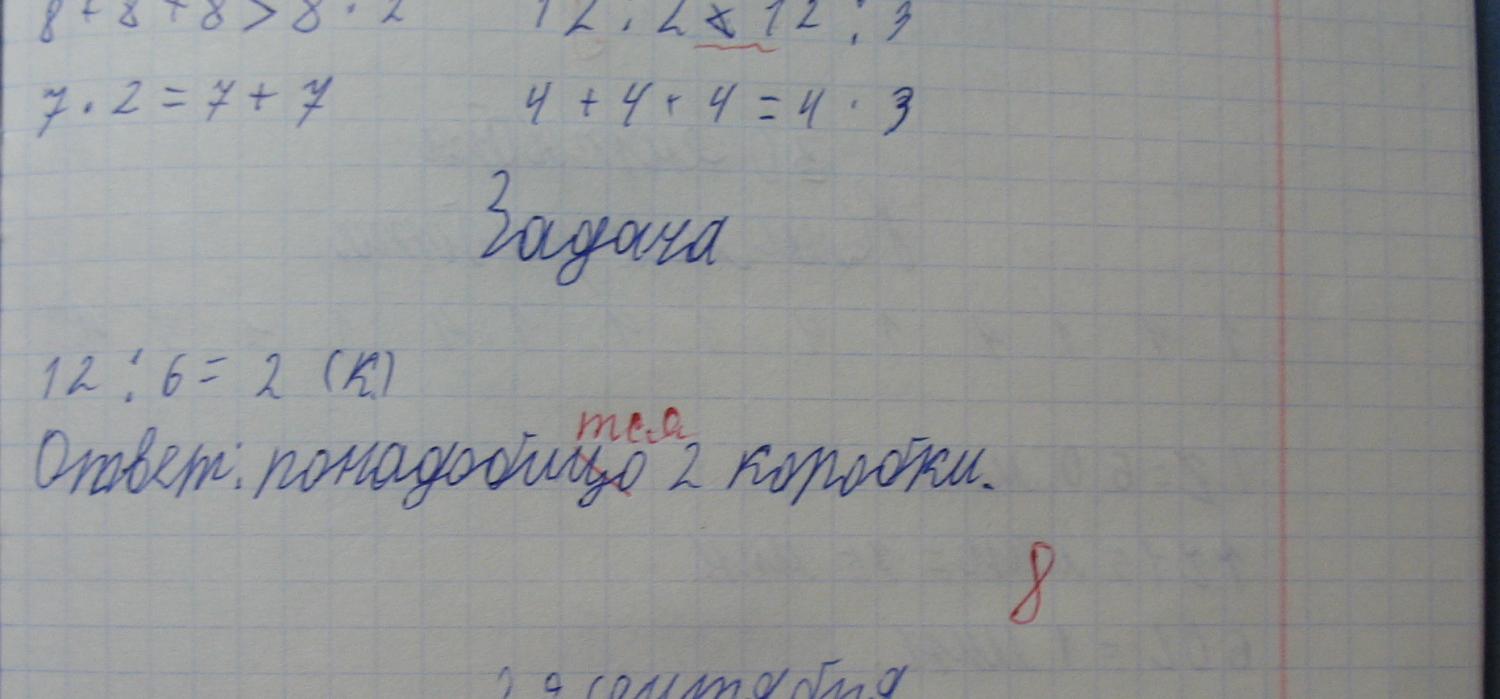 8 + 8 + 8 > 8 · 2 12 : 2 < 12 : 3
7 · 2 = 7 + 7 4 + 4 + 4 = 4 · 3
Задача
12 : 6 = 2 (к)
тся
Ответ: понадобицо 2 коробки.
8
сентября